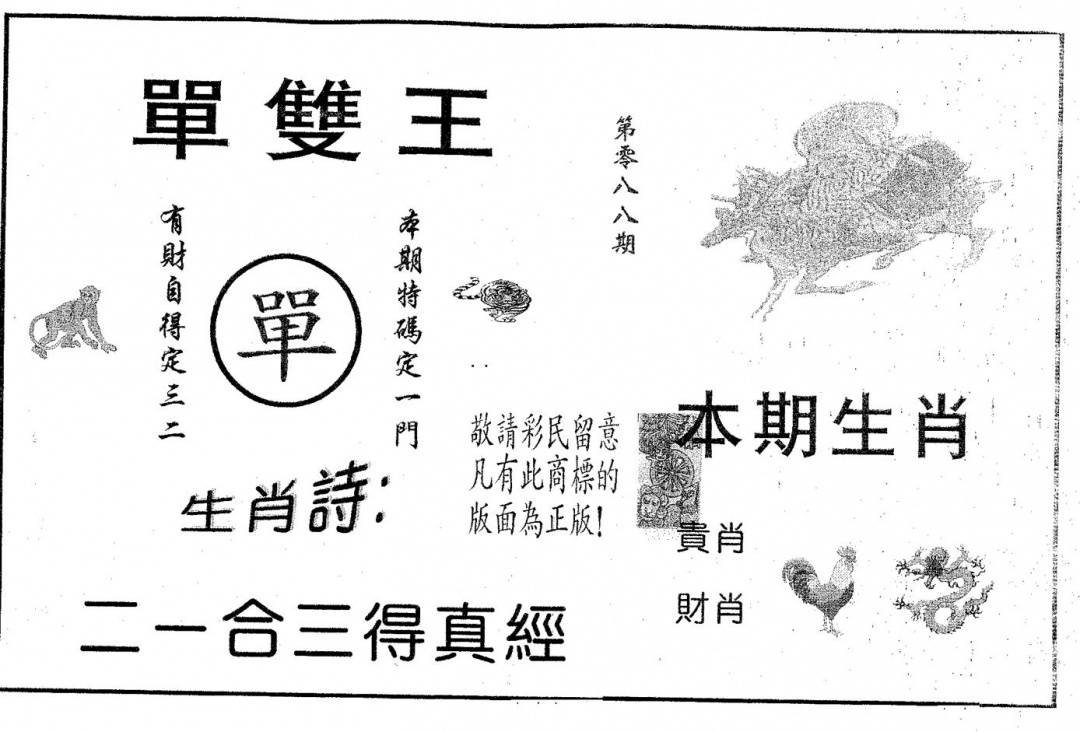 單雙王
第零八八期
本期特碼定一門
單
有財自得定三二
敬請彩民留意
凡有此商標的
版面為正版!
本期生肖
生肖詩:
貴肖
財肖
二一合三得真經